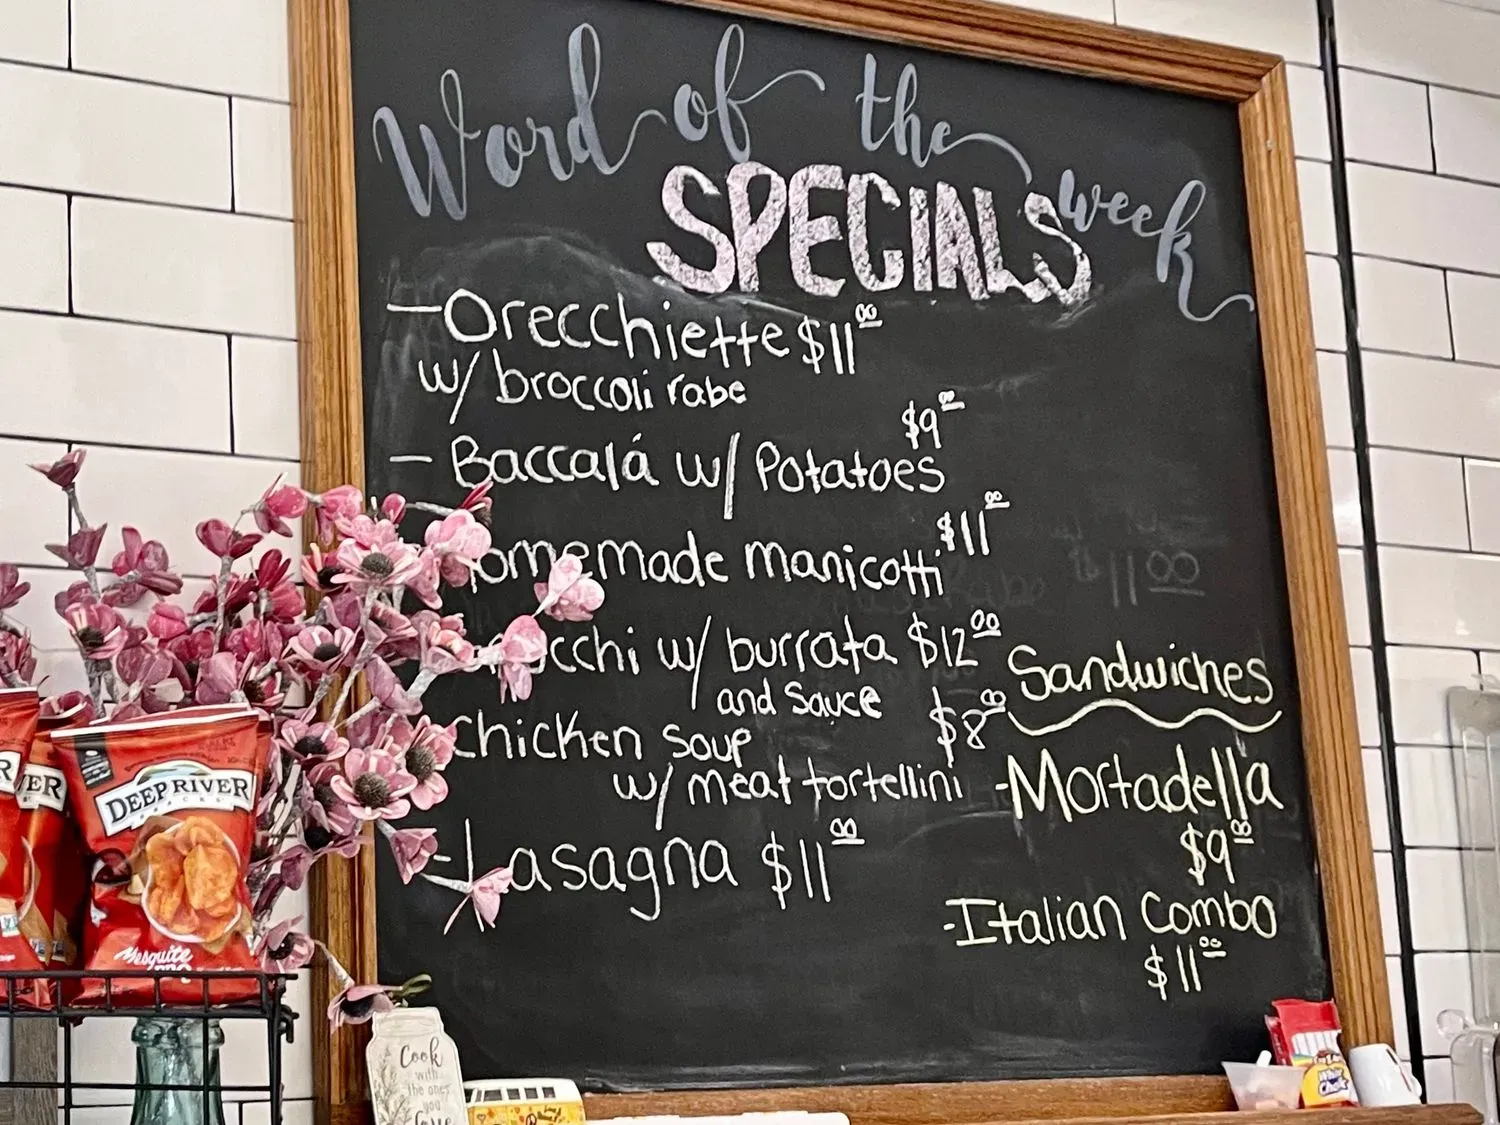 Word of the week
SPECIALS
- Orecchiette $11.00
w/ broccoli rabe
$9.00
- Baccalá w/ Potatoes
$11.00
homemade manicotti
$11.00
w/ burrata $12.00
and Sauce
Chicken soup $8.00
w/ meat tortellini
- Lasagna $11.00
Sandwiches
- Mortadella
$9.00
- Italian Combo
$11.00
DEEP RIVER
SNACKS
Mesquite
BBQ
VER
R
Cook
with
the ones
you
love